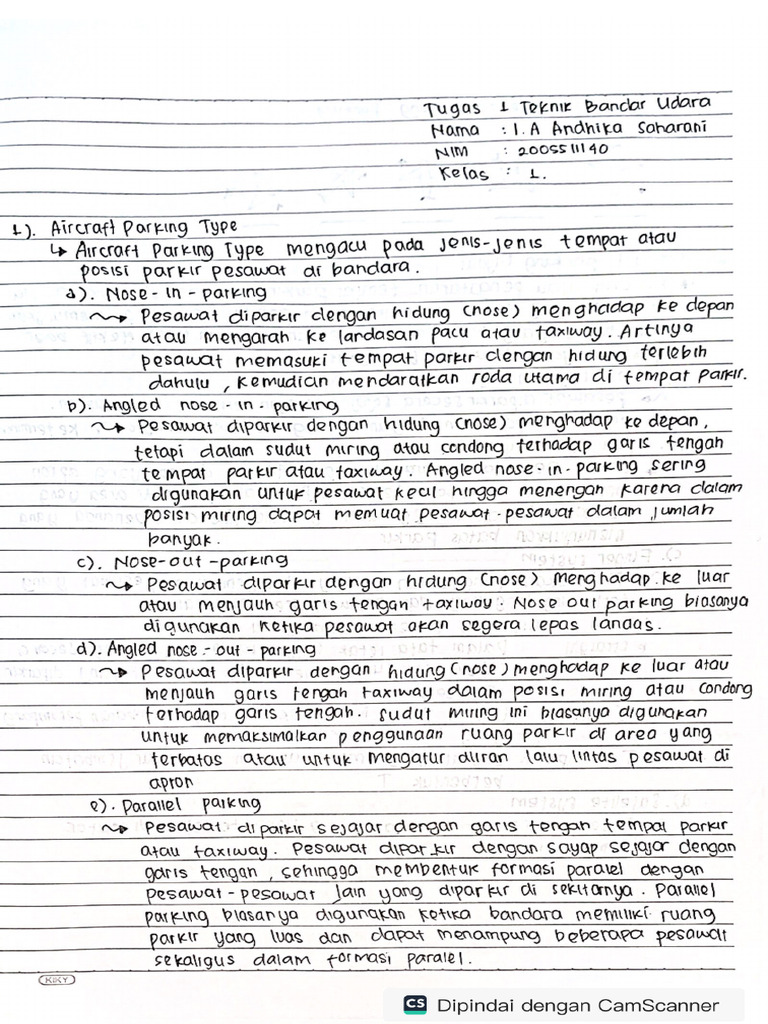 Tugas 1 Teknik Bandar Udara
Nama : I.A Andhika Saharani
NIM : 2005511140
Kelas : 1.
1). Aircraft Parking Type
↳ Aircraft Parking Type mengacu pada jenis-jenis tempat atau
posisi parkir pesawat di bandara.
a). Nose-in-parking
Pesawat diparkir dengan hidung (nose) menghadap ke depan
atau mengarah ke landasan pacu atau taxiway. Artinya
pesawat memasuki tempat parkir dengan hidung terlebih
dahulu, kemudian mendaratkan roda utama di tempat parkir.
b). Angled nose-in-parking
Pesawat diparkir dengan hidung (nose) menghadap ke depan,
tetapi dalam sudut miring atau condong terhadap garis tengah
tempat parkir atau taxiway. Angled nose-in-parking, sering
digunakan untuk pesawat kecil hingga menengah karena dalam
posisi miring dapat memuat pesawat-pesawat dalam jumlah
banyak.
c). Nose-out-parking
Pesawat diparkir dengan hidung (nose) menghadap ke luar
atau menjauh garis tengah taxiway. Nose out parking biasanya
digunakan ketika pesawat akan segera lepas landas.
d). Angled nose-out-parking
Pesawat diparkir dengan hidung (nose) menghadap ke luar atau
menjauh garis tengah taxiway dalam posisi miring atau condong
terhadap garis tengah. Sudut miring ini biasanya digunakan
untuk memaksimalkan penggunaan ruang parkir di area yang
terbatas atau untuk mengatur aliran lalu lintas pesawat di
apron
e). Parallel parking
Pesawat diparkir sejajar dengan garis tengah tempat parkir
atau taxiway. Pesawat diparkir dengan sayap sejajar dengan
garis tengah, sehingga membentuk formasi paralel dengan
pesawat-pesawat lain yang diparkir di sekitarnya. Parallel
parking biasanya digunakan ketika bandara memiliki ruang
parkir yang luas dan dapat menampung beberapa pesawat
sekaligus dalam formasi paralel.
KIKY
CS Dipindai dengan CamScanner